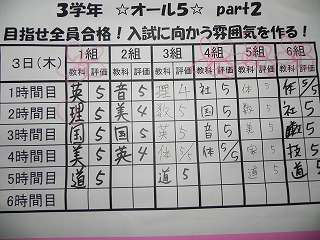 3学年 ☆オール5☆ part2
目指せ全員合格!入試に向かう雰囲気を作る!
3日(木) 1組 2組 3組 4組 5組 6組
教科 評価 教科 評価 教科 評価 教科 評価 教科 評価 教科 評価
1時間目 英 5 音 5 理 4 社 5 体 5 体 5/5
2時間目 理 5 美 4 数 5 国 5 数 5 社 5
3時間目 国 5 国 5 英 5 音 5 美 5 数 5
4時間目 美 5 英 4 体 5/5 体 5/5 5 技 5
5時間目 道 5 道 5 道 5 道 5
6時間目